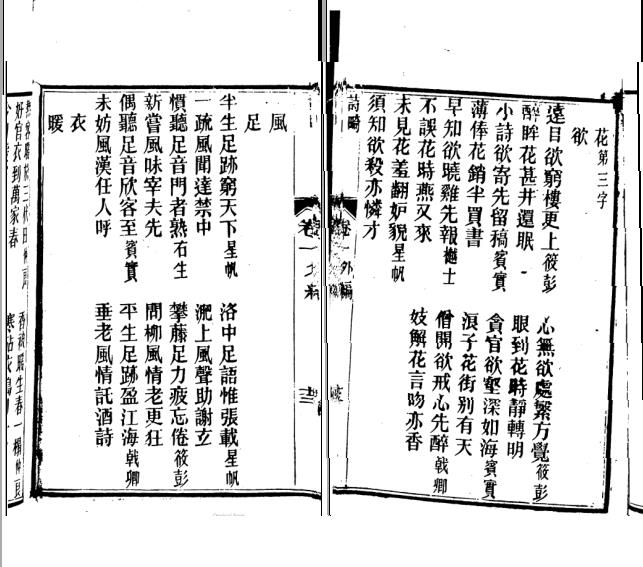 花 第三字
欲
遠目欲窮樓更上筱彭 心無欲處繁方覺筱彭
醉眸花甚井還眠 眼到花時靜轉明
小詩欲寄先留稿賓實 貪官欲壑深如海賓實
薄俸花銷半買書 浪子花街別有天
早知欲曉雞先報樾士 僧開欲戒心先醉戟卿
不誤花時燕又來 妓解花言吻亦香
未見花羞翻妒貌星帆
須知欲殺亦憐才
詩畸 卷一外編
風
足
半生足跡窮天下星帆 洛中足語惟張載星帆
一疏風聞達禁中 淝上風聲助謝玄
慣聽足音門者熟石生 攀藤足力疲忘倦筱彭
新嘗風味宰夫先 問柳風情老更狂
偶聽足音欣客至賓實 平生足跡盈江海戟卿
未妨風漢任人呼 垂老風情託酒詩
衣
暖
好官衣到萬家春